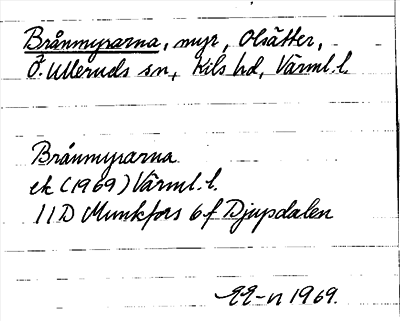 Brånmyrarna, myr, Olsätter,
Ö. Ulleruds sn, Kils hd, Värml. l.
Brånmyrarna
ek (1969) Värml. l.
11D Munkfors 6f Djupdalen
1969.